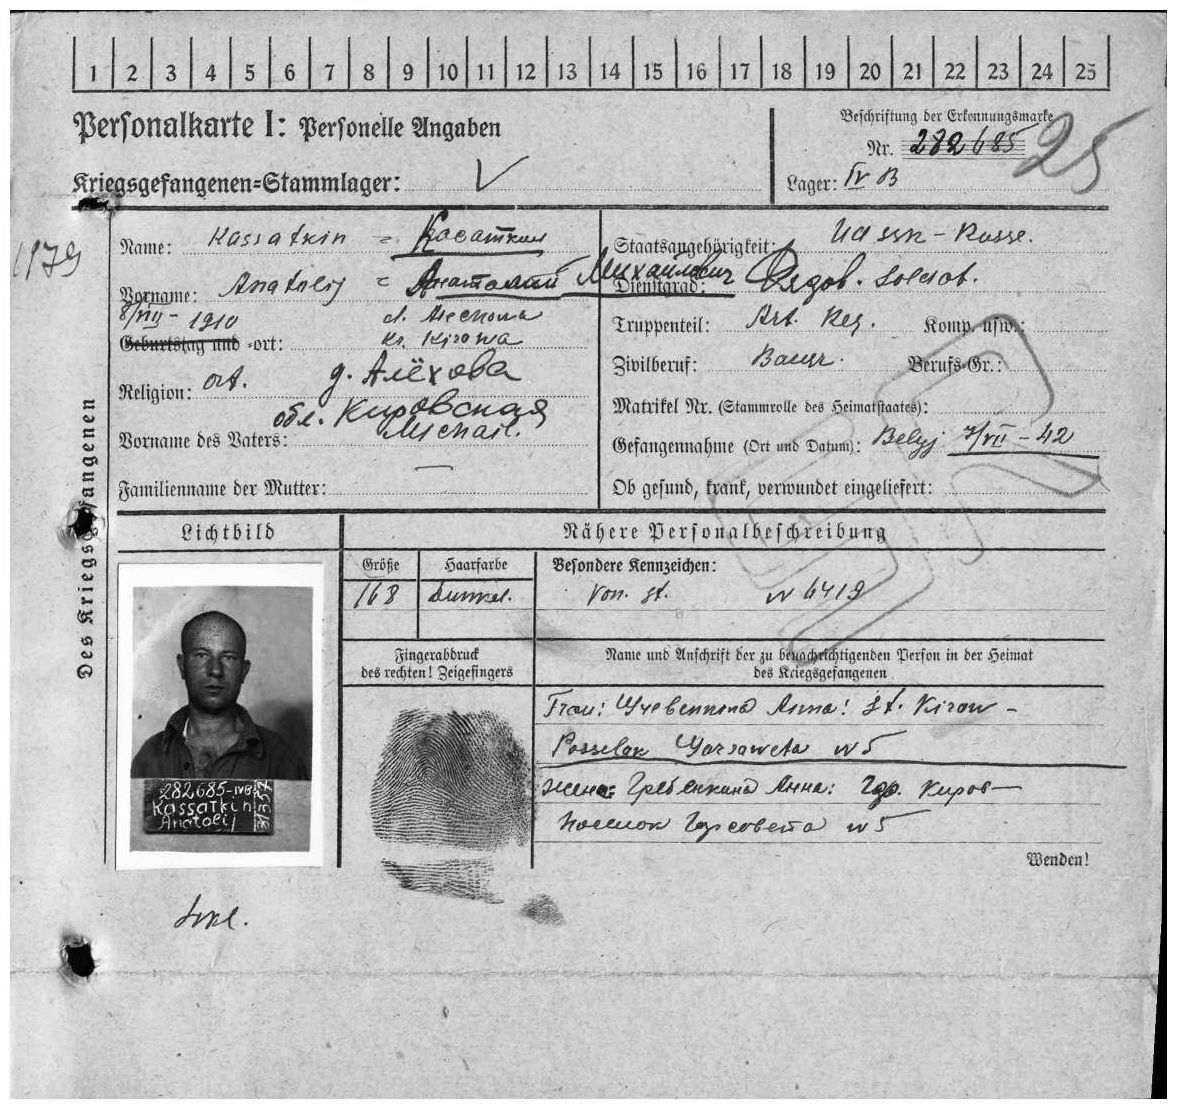 1 2 3 4 5 6 7 8 9 10 11 12 13 14 15 16 17 18 19 20 21 22 23 24 25
Personalkarte I: Personelle Angaben
Beschriftung der Erkennungsmarke
Nr. 282685
25
Kriegsgefangenen-Stammlager: V
Lager: IV B
1979
Des Kriegsgefangenen
Name: Kassatkin = Касаткин
Vorname: Anatolij = Анатолий Михайлович
8/VII - 1910
Geburtstag und -ort:
Kr. Kirowa
Religion: ort. д. Алёхова
обл. Кировская
Vorname des Vaters: Michail.
Familienname der Mutter: —
Staatsangehörigkeit: - Russe.
Dienstgrad: Рядов. Soldat.
Truppenteil: Art. Reg. Komp. usw.:
Zivilberuf: Bauer. Berufs-Gr.:
Matrikel Nr. (Stammrolle des Heimatstaates):
Gefangennahme (Ort und Datum): Belyj 7/VII - 42
Ob gesund, krank, verwundet eingeliefert:
Lichtbild
Nähere Personalbeschreibung
Größe
Haarfarbe
Besondere Kennzeichen:
168
Dunkel.
Von. St. N 6419
Fingerabdruck
des rechten! Zeigefingers
Name und Anschrift der zu benachrichtigenden Person in der Heimat
des Kriegsgefangenen
Frau: Anna: St. Kirow -
Posselok N 5
жена: Гребенкина Анна: гор. Киров —
Поселок Горсовета N 5
Wenden!
282685-IVB
Kassatkin
Anatolij